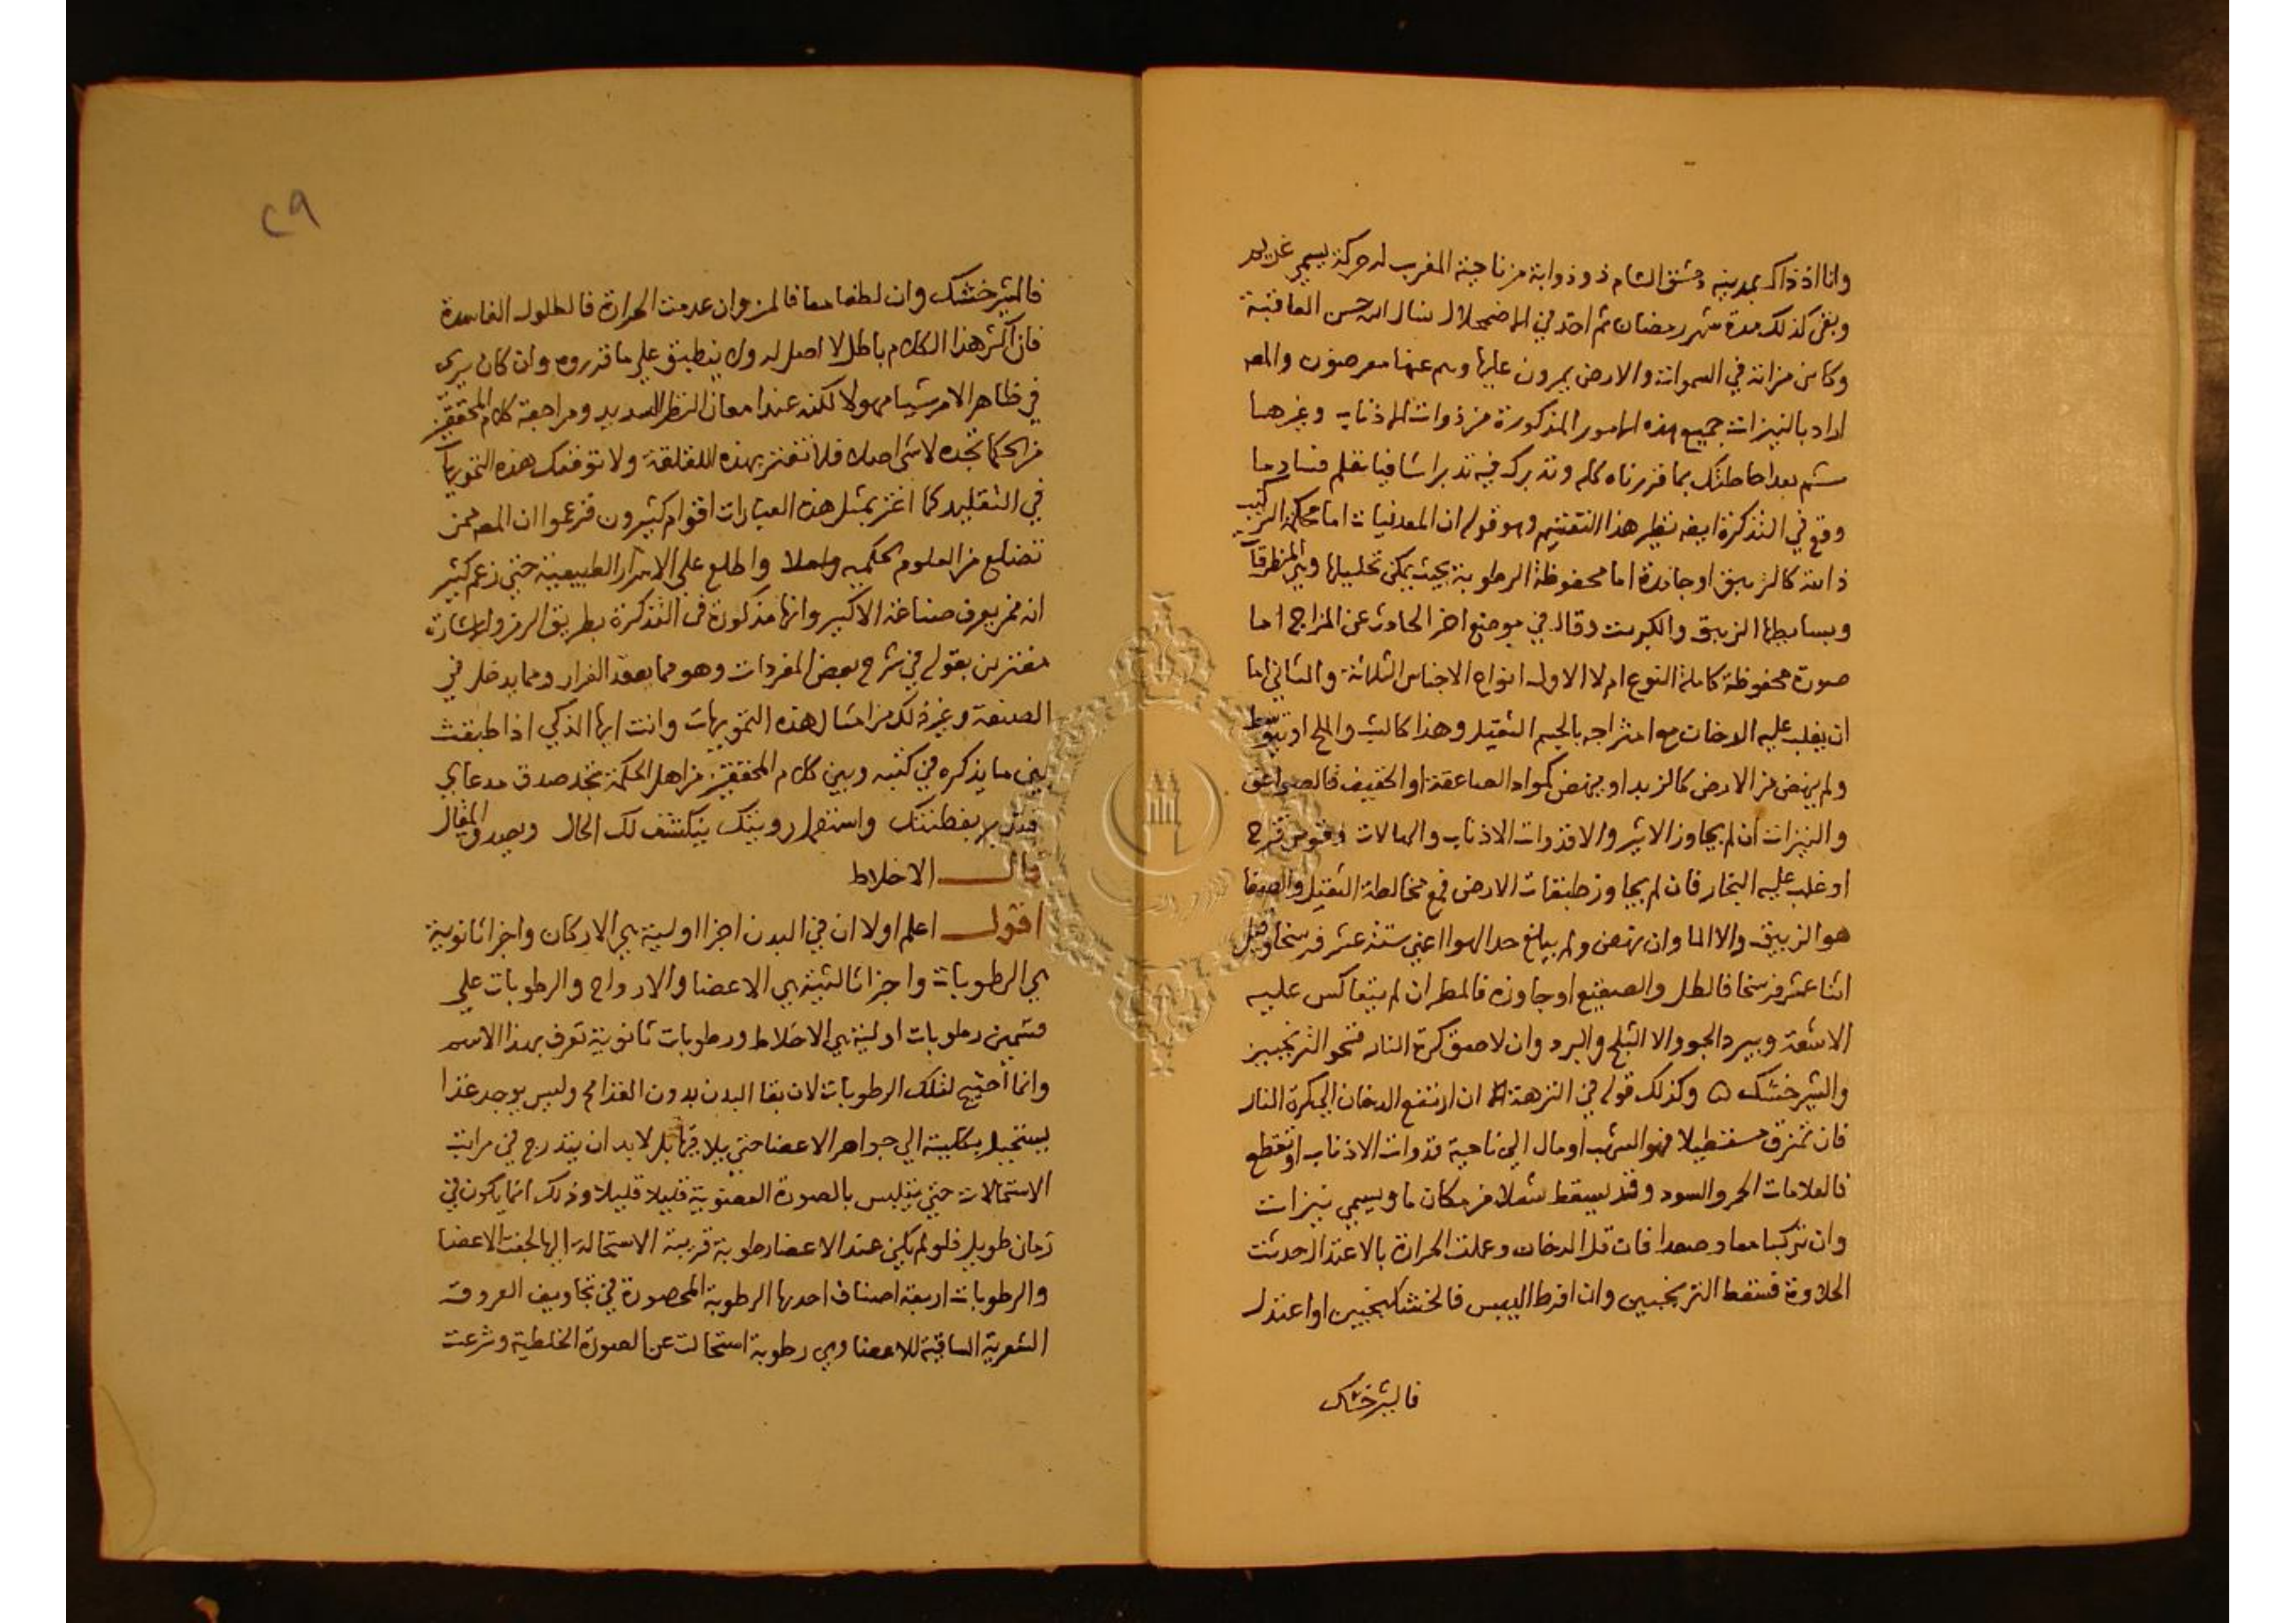 وانا اذ ذاك بمدينه دمشق الشام ذو ذوابة من ناحية المغرب له حركة يسمي
وبقى كذلك مدة شهر رمضان ثم اخذ في الاضمحلال نسال الله حسن العاقبة
وكاىن من اية في السموات والارض يمرون عليها وهم عنها معرضون والمصه
اراد بالنيزات جميع هذه الامور المذكورة من ذوات الاذناب وغيرها
ثم بعد احاطتك بما قررناه لك وتدبرك فيه تدبرا شافيا تعلم فساد ما
وقع في التذكرة ايضه نظير هذا التقسيم وهو قوله ان المعدنيات اما محكمة التركيب
ذائبة كالزيبق او جامدة اما محفوظة الرطوبة بحيث يمكن تحليلها وهي المنطرقات
وبسايطها الزيبق والكبريت وقال في موضع اخر الحادث عن المزاج اما
صورة محفوظة كاملة النوع ام لا الاول انواع الاجناس الثلاثة والثاني اما
ان يغلب عليه الدخان مع امتزاجه بالجسم الثقيل وهذا كالشب والملح او يتوسط
ولم ينهض من الارض كالزبد او ينهض كمواد الصاعقة او الخفيف فالصواعق
والنيزات ان لم يجاوز الاثير والا فذوات الاذناب والهالات وقوس قزح
او غلب عليه البخار فان لم يجاوز طبقات الارض فمع مخالطة الثقيل والصفا
هو الزيبق والا الما وان نهض ولم يبلغ حد الهوا اعني ستة عشر فرسخا وقيل
اثنا عشر فرسخا فالطل والصقيع او جاوزه فالمطر ان لم يتعاكس عليه
الاشعة ويبرد الجو والا الثلج والبرد وان لاصق كرة النار فنحو الترنجبين
والشيرخشك ه وكذلك قوله في النزهة ان ارتفع الدخان الى كرة النار
فان تمزق مستطيلا فهو الشهب او مال الى ناحية فذوات الاذناب او تقطع
فالعلامات الحمر والسود وقد يسقط شعلا في مكان ما ويسمي نيزات
وان تركبا معا وصعدا فان قل الدخان وعملت الحرارة بالاعتدال حدثت
الحلاوة فسقط الترنجبين وان افرط اليبس فالخشكنجبين او اعتدل
فالشيرخشك
٢٩
فالشيرخشك وان لطفا معا فالمن وان عدمت الحرارة فالطلول الفاسدة
فان اكثر هذا الكلام باطل لا اصل له ولا ينطبق علي ما قرروه وان كان يرى
في ظاهر الامر شيا مهولا لكنه عند امعان النظر السديد ومراجعة كلام المحققين
من الحكما تجده لا شي اصلا فلا تغتر بهذه اللقلقة ولا توقفك هذه التمويهات
في التقليد كما اغتر بمثل هذه العبارات اقوام كثيرون فزعموا ان المصه ممن
تضلع من العلوم الحكميه واملا واطلع علي الاسرار الطبيعية حتي زعم كثير
انه ممن يعرف صناعة الاكسير وانها مذكورة في التذكرة بطريق الرمز والاشارة
مغترين بقوله في شرح بعض المفردات وهو مما يعقد الفرار ومما يدخل في
الصنعة وغير ذلك من امثال هذه التمويهات وانت ايها الذكي اذا طبقت
بين ما يذكره في كتبه وبين كلام المحققين من اهل الحكمة تجد صدق مدعاي
فتدبر بفطنتك واستعمل رويتك ينكشف لك الحال ويصدق المقال
قال الاخلاط
اقول اعلم اولا ان في البدن اجزا اولية هي الاركان واجزا ثانوية
هي الرطوبات واجزا ثالثية هي الاعضا والارواح والرطوبات علي
قسمين رطوبات اولية هي الاخلاط ورطوبات ثانوية تعرف بهذا الاسم
وانما احتيج لتلك الرطوبات لان بقا البدن بدون الغذا مح وليس يوجد غذا
يستحيل بكليته الي جواهر الاعضا حتي يلاقيها بل لا بد ان يتدرج في مراتب
الاستحالات حتي يتلبس بالصورة العضوية قليلا قليلا وذلك انما يكون في
زمان طويل فلو لم يكن عند الاعضا رطوبة قريبة الاستحالة اليها لجفت الاعضا
والرطوبات اربعة اصناف احدها الرطوبة المحصورة في تجاويف العروق
الشعرية الساقية للاعضا وهي رطوبة استحالت عن الصورة الخلطية وشرعت